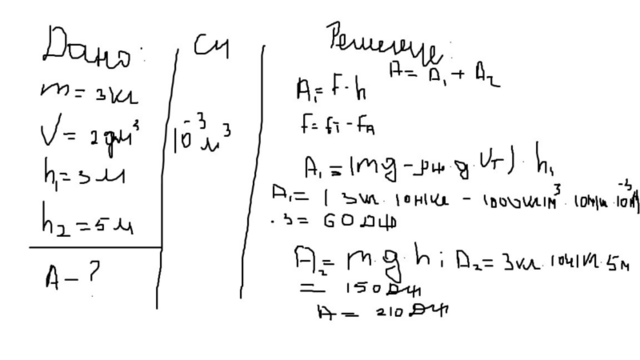 Дано:
m = 3кг
V = 2дм³
h₁ = 3м
h₂ = 5м
A - ?
СИ
10⁻³м³
Решение:
A = A₁ + A₂
A₁ = F · h
F = Fт - FA
A₁ = (mg - ρж g Vт) h₁
A₁ = ( 3кг · 10Н/кг - 1000кг/м³ · 10Н/кг · 10⁻³м³
· 3 = 60Дж
A₂ = m g h ; A₂ = 3кг · 10Н/кг · 5м
= 150Дж
A = 210Дж